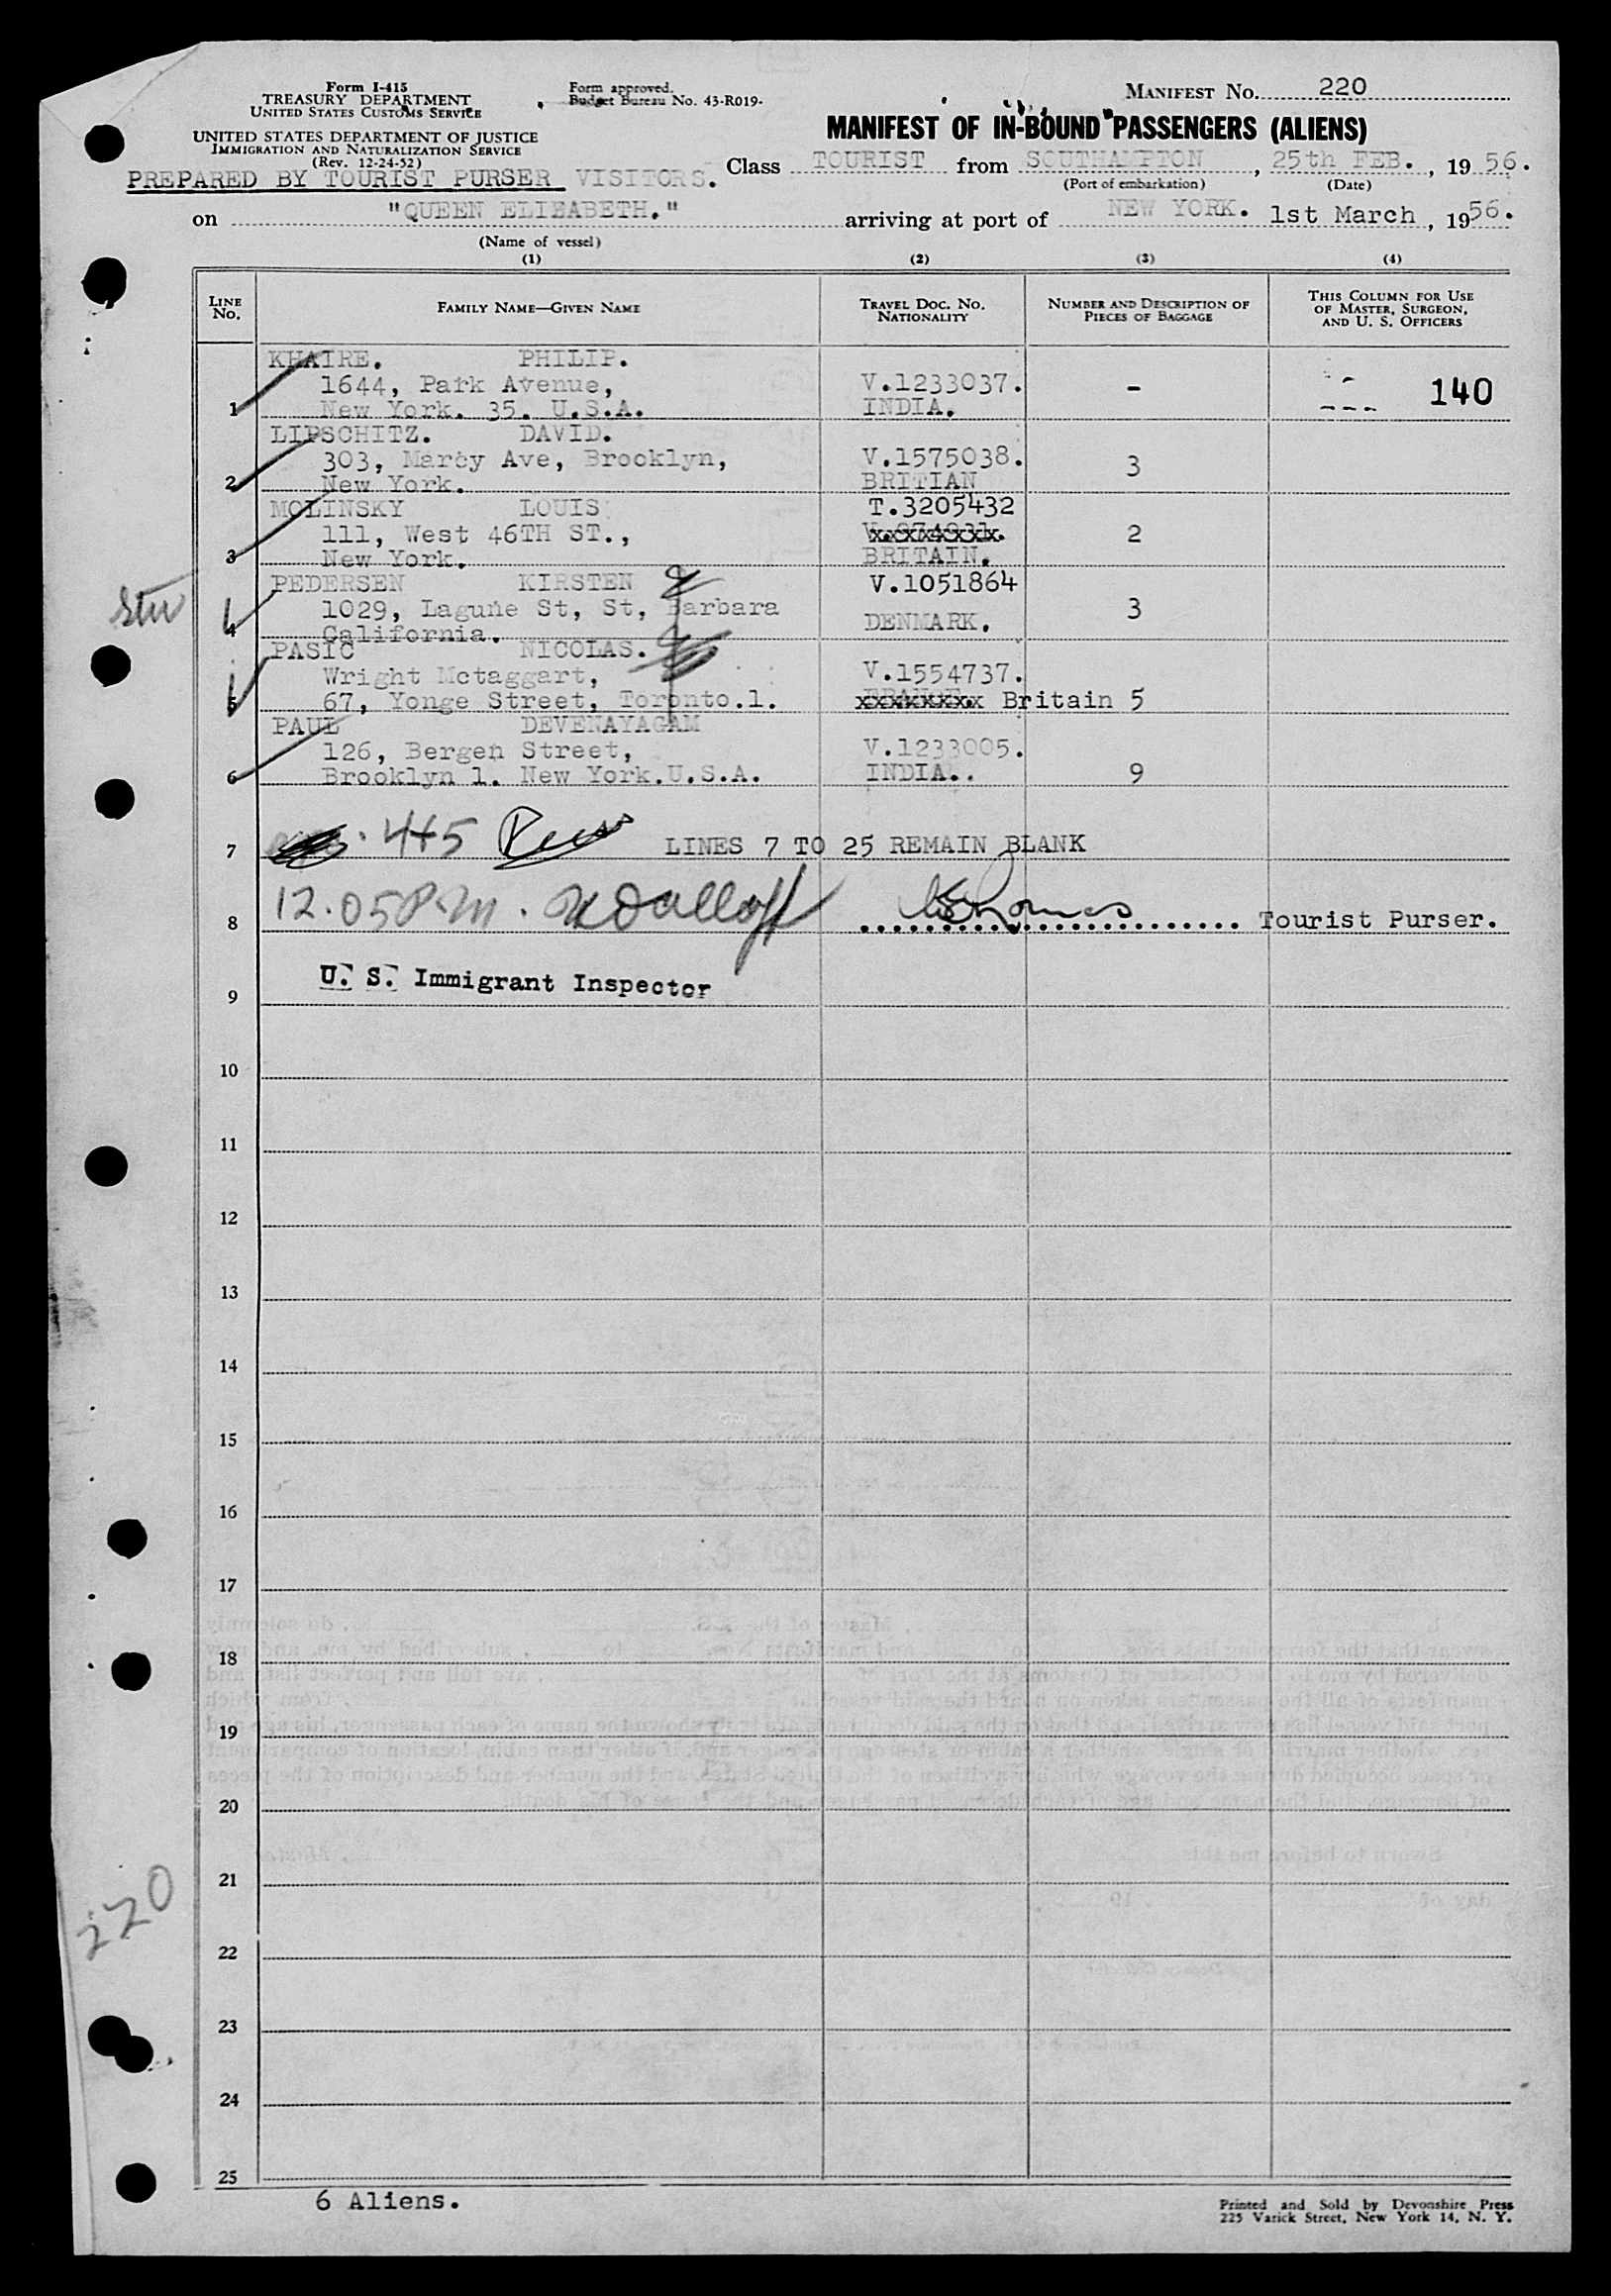 Form I-415
TREASURY DEPARTMENT
UNITED STATES CUSTOMS SERVICE
UNITED STATES DEPARTMENT OF JUSTICE
IMMIGRATION AND NATURALIZATION SERVICE
(Rev. 12-24-52)
Form approved.
Budget Bureau No. 43-R019.
MANIFEST NO. 220
MANIFEST OF IN-BOUND PASSENGERS (ALIENS)
PREPARED BY TOURIST PURSER VISITORS.
Class TOURIST from SOUTHAMPTON, 25th FEB., 1956.
(Port of embarkation) (Date)
on "QUEEN ELIZABETH." arriving at port of NEW YORK. 1st March, 1956.
(Name of vessel)
(1) (2) (3) (4)
LINE NO. FAMILY NAME—GIVEN NAME TRAVEL DOC. NO. NATIONALITY NUMBER AND DESCRIPTION OF PIECES OF BAGGAGE THIS COLUMN FOR USE OF MASTER, SURGEON, AND U. S. OFFICERS
KHAIRE. PHILIP.
1644, Park Avenue, V.1233037. - 140
1 New York. 35. U.S.A. INDIA.
LIPSCHITZ. DAVID.
303, Marcy Ave, Brooklyn, V.1575038. 3
2 New York. BRITIAN
MOLINSKY LOUIS T.3205432
111, West 46TH ST., 2
3 New York. BRITAIN.
PEDERSEN KIRSTEN V.1051864
1029, Lagune St, St, Barbara 3
4 California. DENMARK.
PASIC NICOLAS.
Wright Mctaggart, V.1554737.
5 67, Yonge Street, Toronto.1. xxxxxxxx Britain 5
PAUL DEVENAYAGAM
126, Bergen Street, V.1233005.
6 Brooklyn 1. New York.U.S.A. INDIA.. 9
7 445 LINES 7 TO 25 REMAIN BLANK
8 12.05 P.M. Tourist Purser.
9 U. S. Immigrant Inspector
10
11
12
13
14
15
16
17
18
19
20
21
220
22
23
24
25
6 Aliens.
Printed and Sold by Devonshire Press
225 Varick Street, New York 14, N. Y.